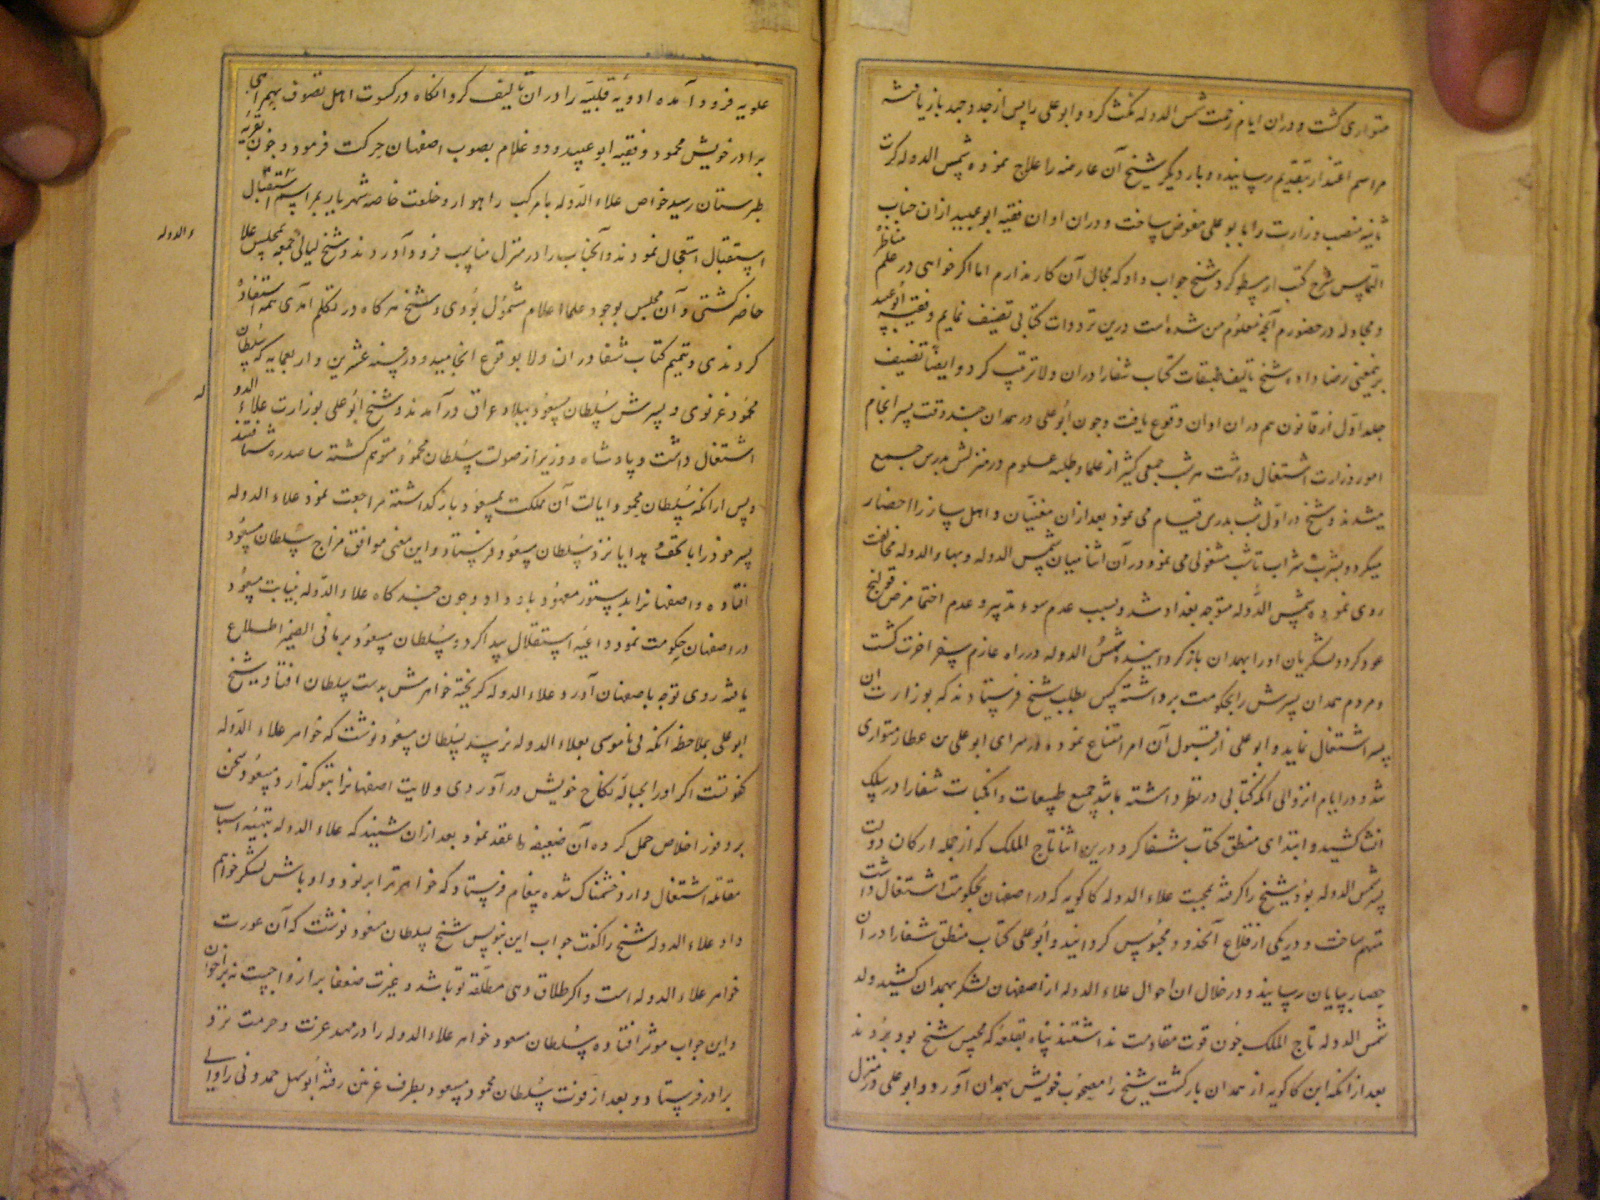 متواری کشت و دران ایام زحمت شمس الدوله نکث کرد و ابو علی را پس از جد و جهد باز یافته
مراسم اعتذار بتقدیم رسانیده و بار دیگر شیخ آن عارضه را علاج نموده شمس الدوله کرت
ثانیه منصب وزارت را بابو علی مفوض ساخت و دران اوان فقیه ابو عبید ازان جناب
التماس شرح کتب ارسطو کرد شیخ جواب داد که مجال آن کار ندارم اما اکر خواهی در علم مناظره
و مجادله در حضورم آنچه معلوم من شده است درین ترددات کتابی تصنیف نمایم و فقیه ابو عبید
برینمعنی رضا داده شیخ تالیف طبقات کتاب شفا را دران ولا ترتیب کرد و ایضا تصنیف
جلد اول از قانون هم دران اوان وقوع یافت و چون ابو علی در همدان چند وقت بسرانجام
امور وزارت اشتغال داشت هر شب جمعی کثیر از علما و طلبه علوم در منزلش بدرس جمع
میشدند و شیخ در اول شب بدرس قیام می نمود بعد ازان مغنیان و اهل ساز را احضار
میکرد و بشرب شراب تا شب مشغولی می نمود در آن اثنا میان شمس الدوله و بهاء الدوله مخالفت
روی نموده شمس الدوله متوجه بغداد شد و بسبب عدم سوء تدبیر و عدم احتما مرض قولنج
عود کرد و لشکریان او را بهمدان باز کردانیده شمس الدوله در راه عازم سفر اخرت کشت
و مردم همدان پسرش را بحکومت برداشته کس بطلب شیخ فرستادند که بوزارت ان
پسر اشتغال نماید و ابو علی از قبول آن امر امتناع نموده در سرای ابو علی بن عطار متواری
شد و در ایام انزوا بی انکه کتابی در نظر داشته باشد جمیع طبیعات و الهیات شفا را در سلک
انشا کشید و ابتدای منطق کتاب شفا کرد و درین اثنا تاج الملک که از جمله ارکان دولت
پسر شمس الدوله بود شیخ را کرفته بمحبت علاء الدوله کاکویه که در اصفهان بحکومت اشتغال داشت
متهم ساخت و در یکی از قلاع آنحدود محبوس کردانید و ابو علی کتاب منطق شفا را در ان
حصار بپایان رسانید و در خلال ان احوال علاء الدوله از اصفهان لشکر بهمدان کشید ولد
شمس الدوله تاج الملک چون قوت مقاومت نداشتند پناه بقلعه که محبس شیخ بود بردند
بعد از انکه ابن کاکویه از همدان بازکشت شیخ را مصحوب خویش بهمدان آورد و ابو علی در منزل
علویه فرود آمده ادویه قلبیه را دران تالیف کرد و انکاه در کسوت اهل تصوف بهمراهی
برادر خویش محمود و فقیه ابو عبید و دو غلام بصوب اصفهان حرکت فرمود و چون بقریه
طبرستان رسید خواص علاء الدوله با مرکب راهوار و خلعت خاصه شهریار بمراسم استقبال
استقبال استعجال نمودند و آنجناب را در منزل مناسب فرود آوردند و شیخ لیالی جمعه بمجلس علا
ء الدوله
حاضر کشتی و آن مجلس بوجود علماء اعلام مشمول بودی و شیخ هر کاه در تکلم امدی همه استفاده
کردندی و تتمیم کتاب شفا دران ولا بوقوع انجامید و در سنه عشرین و اربعمایه که سلطان
محمود غزنوی و پسرش سلطان مسعود ببلاد عراق در آمدند و شیخ ابو علی بوزارت علاء الدو
له
اشتغال داشت و پادشاه و وزیر از صولت سلطان محمود متوهم کشته بصدره شتافتند
و پس از انکه سلطان محمود ایالت آن مملکت بمسعود باز کذاشته مراجعت نمود علاء الدوله
پسر خود را با تحف و هدایا نزد سلطان مسعود فرستاد و این معنی موافق مزاج سلطان مسعود
افتاده و اصفهانرا بدستور معهود باو داد و چون چند کاه علاء الدوله بنیابت مسعود
در اصفهان حکومت نمود داعیه استقلال پیدا کرده سلطان مسعود بر ما فی الضمیر اطلاع
یافته روی توجه باصفهان آورد و علاء الدوله کریخته خواهرش بدست سلطان افتاد و شیخ
ابو علی بملاحظه انکه بی ناموسی بعلاء الدوله نرسد بسلطان مسعود نوشت که خواهر علاء الدوله
کفو تست اکر او را بحباله نکاح خویش در آوردی ولایت اصفهانرا بتو کذارد مسعود سخن
بر وفور اخلاص حمل کرده آن ضعیفه را عقد نمود بعد ازان شنید که علاء الدوله بتهیه اسباب
مقاتله اشتغال دارد خشمناک شده پیغام فرستاد که خواهر ترا برنود و اوباش لشکر خواهم
داد علاء الدوله شیخ را کفت جواب این بنویس شیخ بسلطان مسعود نوشت که آن عورت
خواهر علاء الدوله است و اکر طلاق دهی مطلقه تو باشد و غیرت ضعفا بر ازواجست نه بر اخوان
و این جواب موثر افتاده سلطان مسعود خواهر علاء الدوله را در مهد عزت و حرمت نزد
برادر فرستاد و بعد از فوت سلطان محمود مسعود بطرف غزنین رفته ابو سهل حمدونی را والی